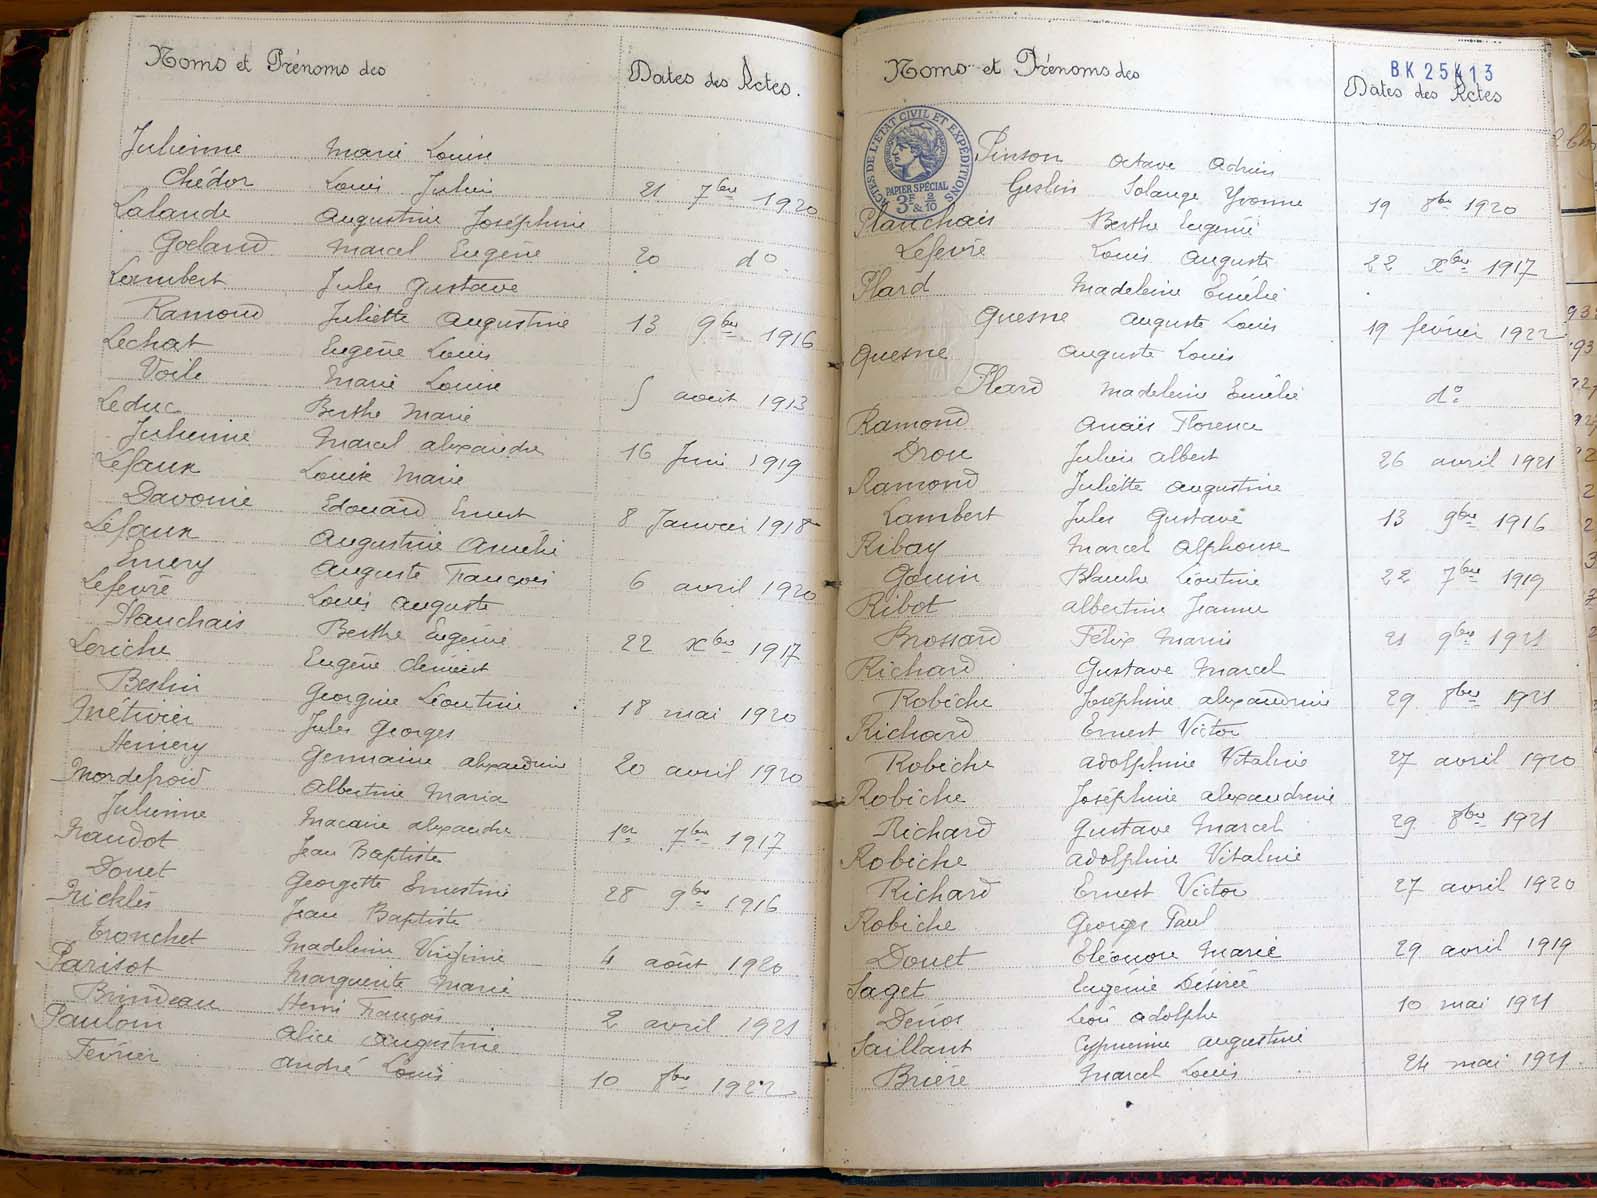 Noms et Prénoms des Dates des Actes.
Julienne Marie Louise
Chédor Louis Julien 21 7bre 1920
Lalande Augustine Joséphine
Goeland Marcel Eugène 20 do
Lambert Jules Gustave
Ramond Juliette Augustine 13 9bre 1916
Lechat Eugène Louis
Voile Marie Louise 5 août 1913
Leduc Berthe Marie
Julienne Marcel Alexandre 16 Juin 1919
Lefaux Louise Marie
Davonie Edouard Ernest 8 Janvier 1918
Lefaux Augustine Amélie
Emery Auguste François 6 avril 1920
Lefèvre Louis Auguste
Planchais Berthe Eugénie 22 xbre 1917
Leriche Eugène Clément
Beslin Georgine Léontine 18 mai 1920
Métivier Jules Georges
Hemery Germaine Alexandrine 20 avril 1920
Mordefroid Albertine Maria
Julienne Macaire Alexandre 1er 7bre 1917
Naudot Jean Baptiste
Douet Georgette Ernestine 28 9bre 1916
Nicklès Jean Baptiste
Tronchet Madeleine Virginie 4 août 1920
Parisot Marguerite Marie
Brindeau Henri François 2 avril 1921
Paulouin Alice Augustine
Février André Louis 10 8bre 1922
BK 25413
Noms et Prénoms des Dates des Actes
ACTES DE L'ETAT CIVIL ET EXPÉDITIONS
PAPIER SPÉCIAL
3F & 2/10
Pinson Octave Adrien
Geslin Solange Yvonne 19 8bre 1920
Planchais Berthe Eugénie
Lefèvre Louis Auguste 22 xbre 1917
Plard Madeleine Emélie
Quesne Auguste Louis 19 février 1922
Quesne Auguste Louis
Plard Madeleine Emélie do
Ramond Anaïs Florence
Drou Julien Albert 26 avril 1921
Ramond Juliette Augustine
Lambert Jules Gustave 13 9bre 1916
Ribay Marcel Alphonse
Gouin Blanche Léontine 22 7bre 1919
Ribot Albertine Jeanne
Brossard Félix Marin 21 9bre 1921
Richard Gustave Marcel
Robiche Joséphine Alexandrine 29 8bre 1921
Richard Ernest Victor
Robiche Adolphine Vitaline 27 avril 1920
Robiche Joséphine Alexandrine
Richard Gustave Marcel 29 8bre 1921
Robiche Adolphine Vitaline
Richard Ernest Victor 27 avril 1920
Robiche Georges Paul
Douet Eléonore Marie 29 avril 1919
Saget Eugénie Désirée
Denos Léon Adolphe 10 mai 1921
Saillant Cyprienne Augustine
Brière Marcel Louis 24 mai 1921